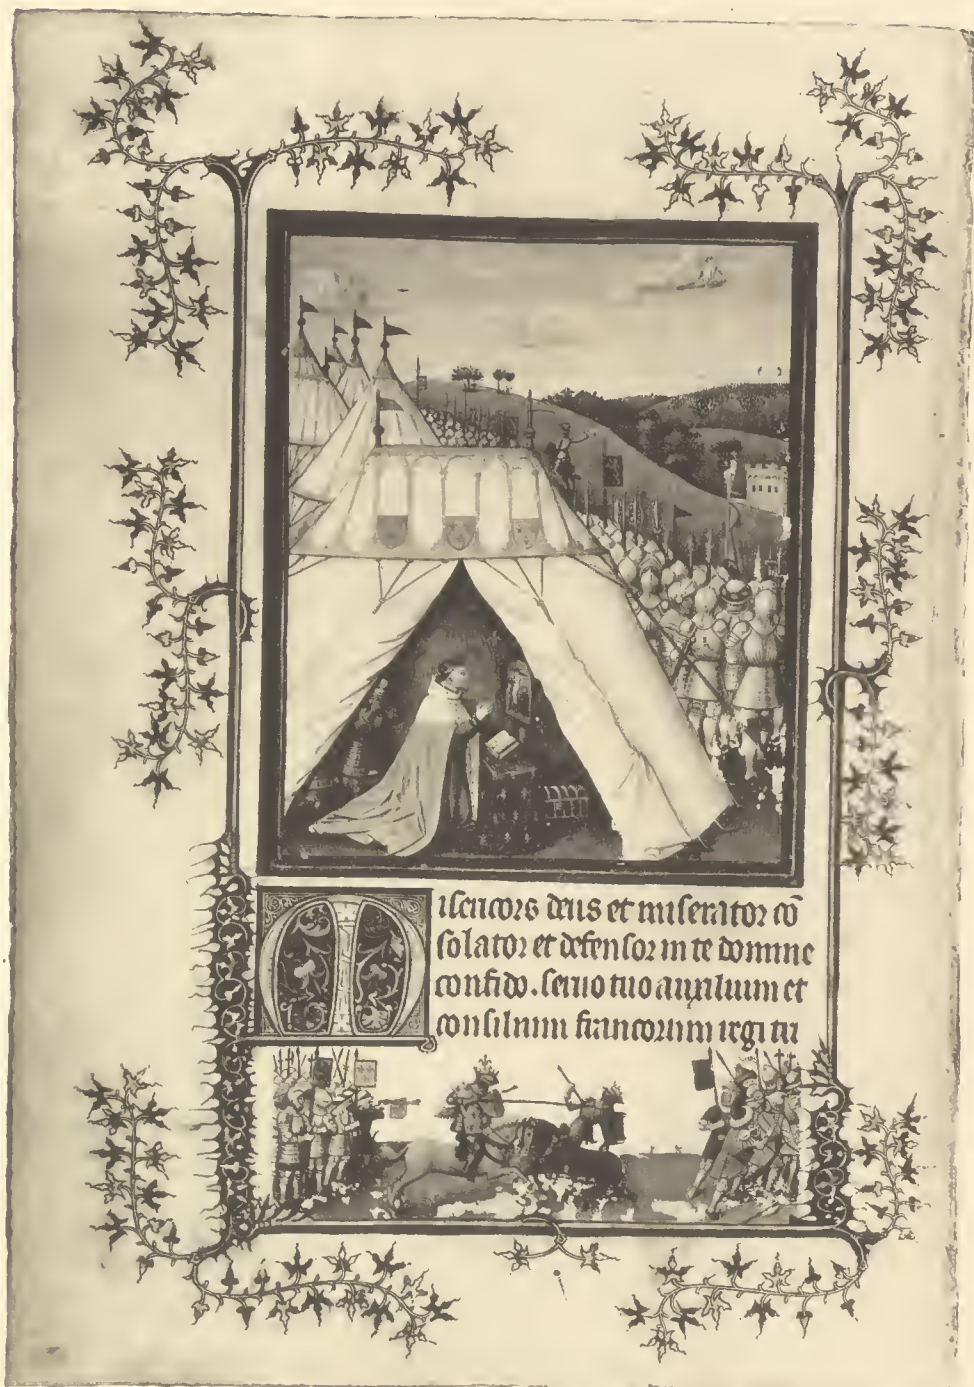 Misericors deus et miserator cō
solator et defensor in te domine
confido. seruo tuo auxilium et
consilium francorum regi tu